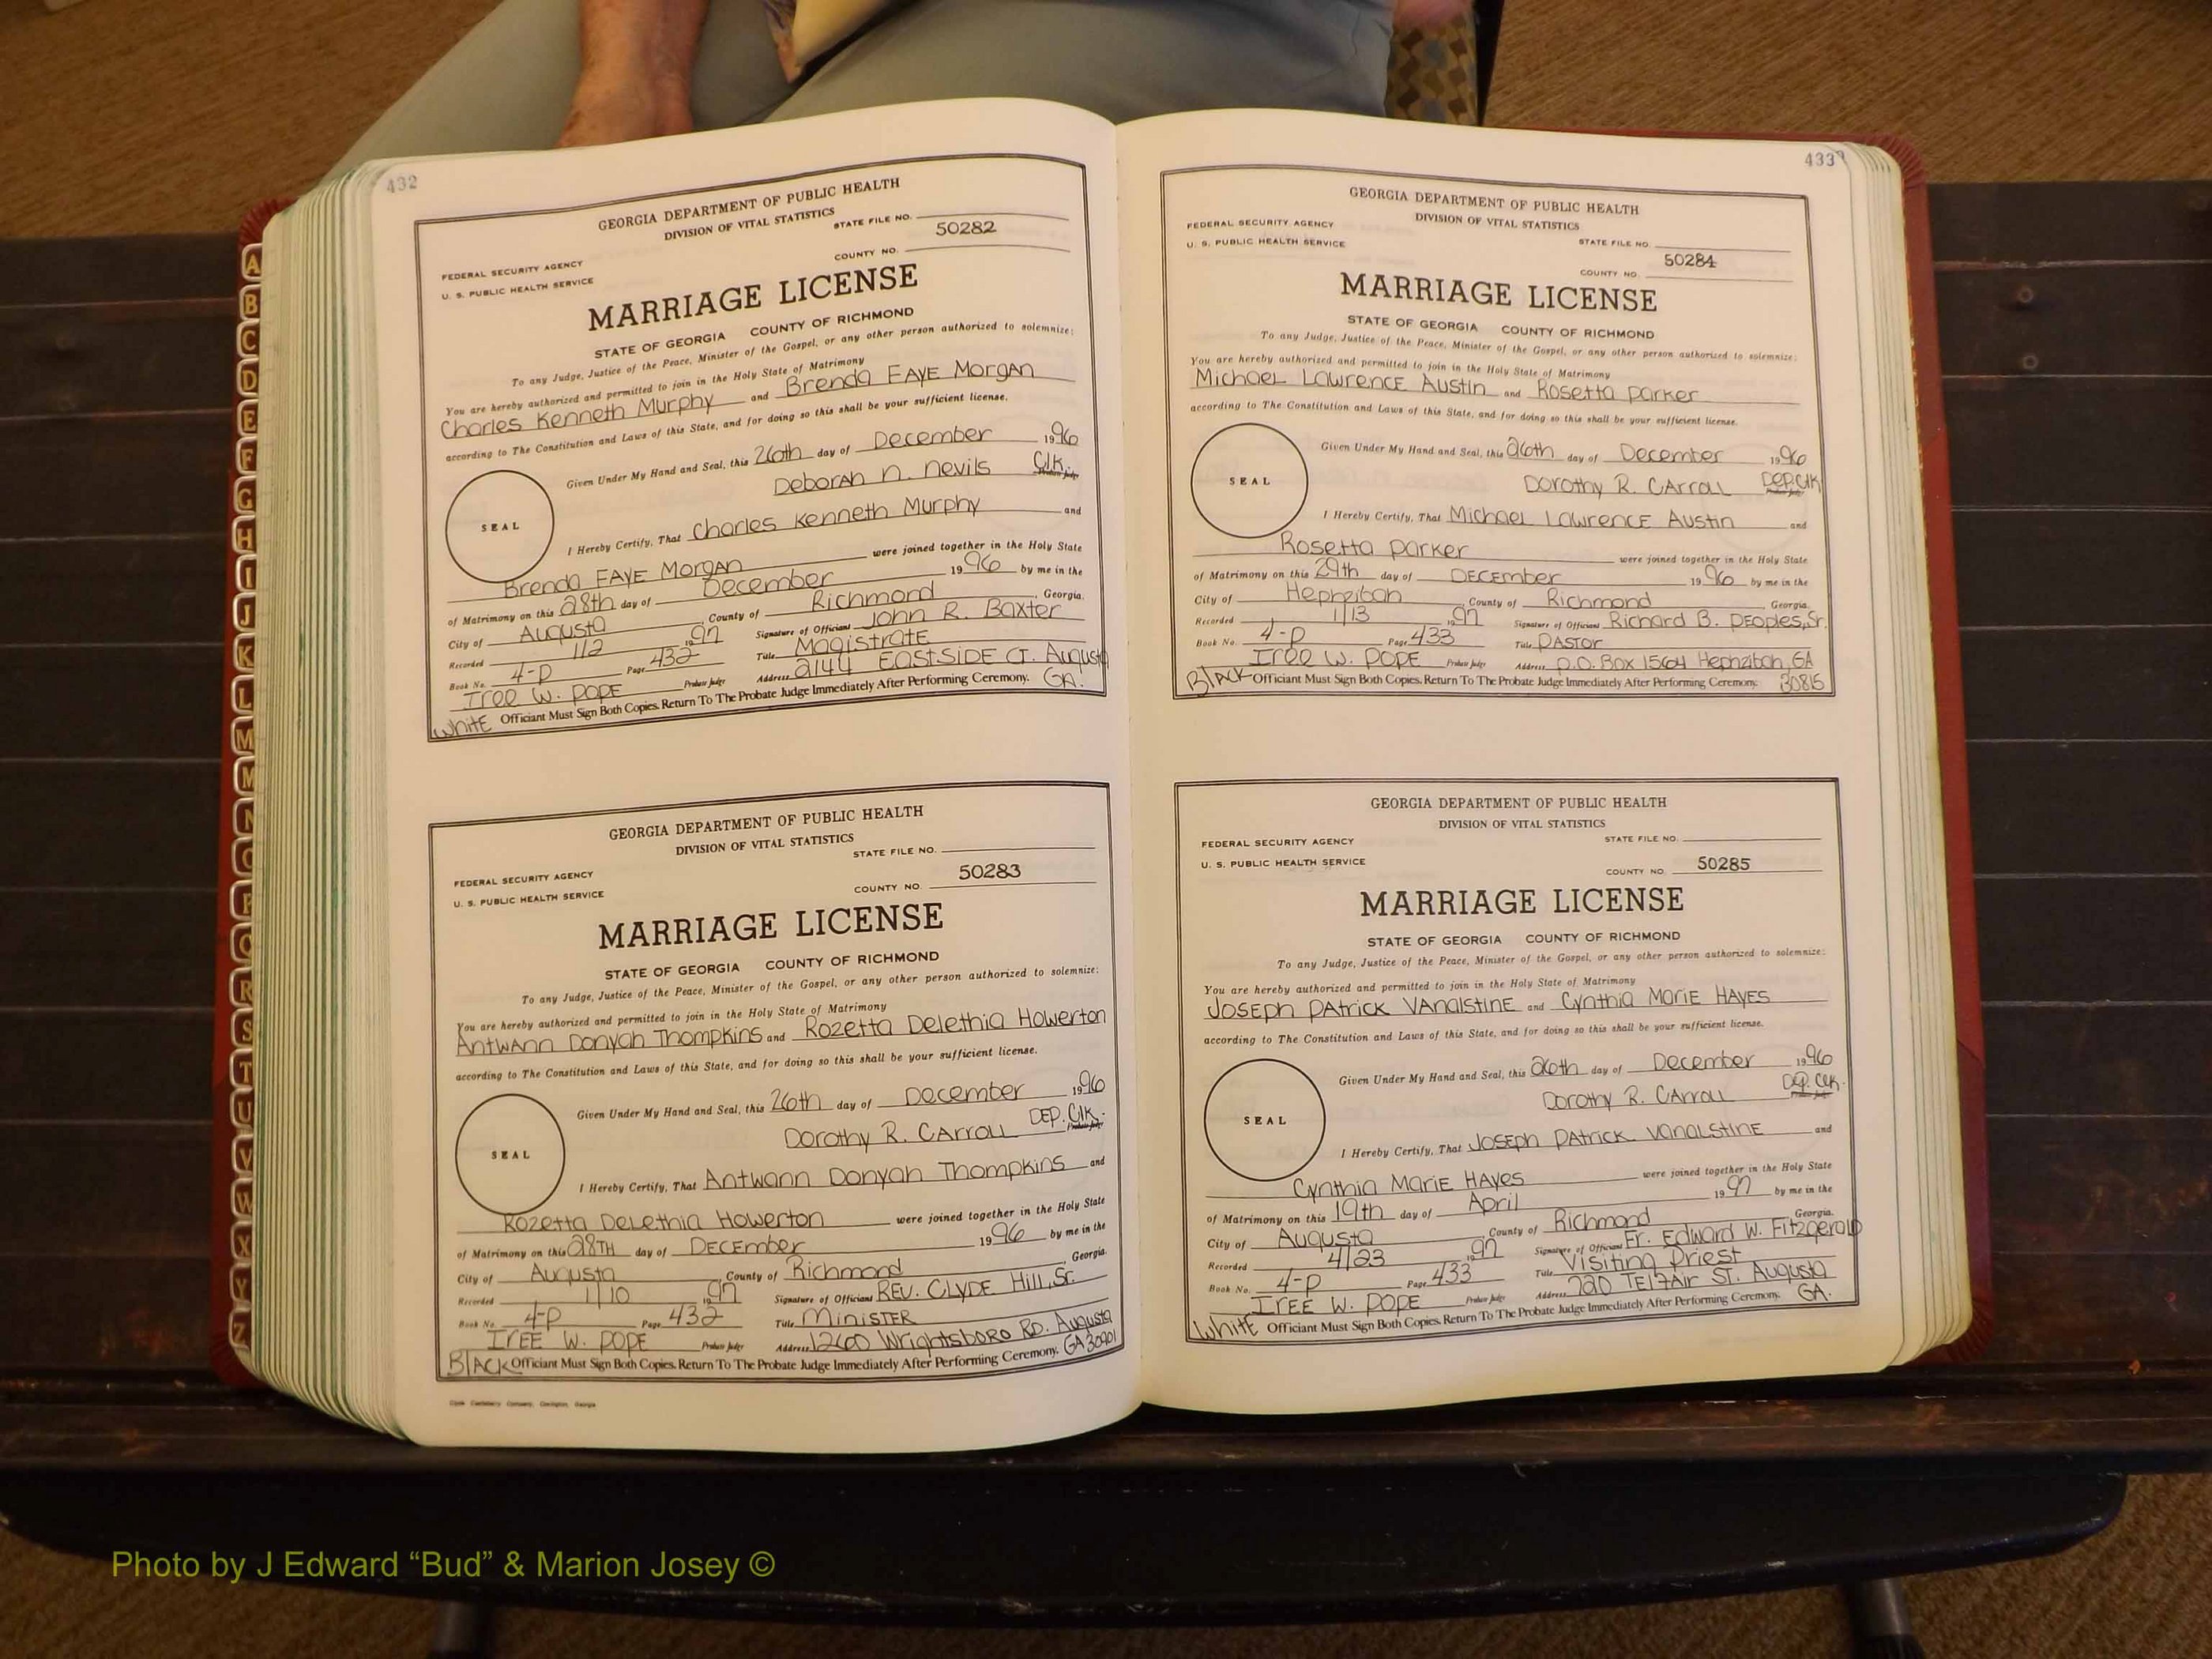 432
GEORGIA DEPARTMENT OF PUBLIC HEALTH
DIVISION OF VITAL STATISTICS
STATE FILE NO.
50282
COUNTY NO.
FEDERAL SECURITY AGENCY
U. S. PUBLIC HEALTH SERVICE
MARRIAGE LICENSE
STATE OF GEORGIA COUNTY OF RICHMOND
To any Judge, Justice of the Peace, Minister of the Gospel, or any other person authorized to solemnize:
You are hereby authorized and permitted to join in the Holy State of Matrimony
Charles Kenneth Murphy and Brenda FAYE Morgan
according to The Constitution and Laws of this State, and for doing so this shall be your sufficient license.
Given Under My Hand and Seal, this 26th day of December 1996
Deborah N. Nevils Clk. Probate Judge
SEAL
I Hereby Certify, That Charles Kenneth Murphy and
Brenda FAYE Morgan were joined together in the Holy State
of Matrimony on this 28th day of December 1996 by me in the
City of Augusta, County of Richmond, Georgia.
Recorded 1/2 1997 Signature of Officiant John R. Baxter
Book No. 4-P Page 432 Title Magistrate
Iree W. Pope Probate Judge Address 2144 EASTSIDE CT. Augusta GA.
White Officiant Must Sign Both Copies. Return To The Probate Judge Immediately After Performing Ceremony.
GEORGIA DEPARTMENT OF PUBLIC HEALTH
DIVISION OF VITAL STATISTICS
STATE FILE NO.
50283
COUNTY NO.
FEDERAL SECURITY AGENCY
U. S. PUBLIC HEALTH SERVICE
MARRIAGE LICENSE
STATE OF GEORGIA COUNTY OF RICHMOND
To any Judge, Justice of the Peace, Minister of the Gospel, or any other person authorized to solemnize:
You are hereby authorized and permitted to join in the Holy State of Matrimony
Antwann Donyah Thompkins and Rozetta Delethia Howerton
according to The Constitution and Laws of this State, and for doing so this shall be your sufficient license.
Given Under My Hand and Seal, this 26th day of December 1996
Dorothy R. Carroll DEP. Clk. Probate Judge
SEAL
I Hereby Certify, That Antwann Donyah Thompkins and
Rozetta DeLethia Howerton were joined together in the Holy State
of Matrimony on this 28TH day of DECEmber 1996 by me in the
City of Augusta, County of Richmond, Georgia.
Recorded 1/10 1997 Signature of Officiant REV. CLYDE Hill, Sr.
Book No. 4-P Page 432 Title MiniSTER
IREE W. POPE Probate Judge Address 12600 Wrightsboro RD. Augusta GA 30901
BlACK Officiant Must Sign Both Copies. Return To The Probate Judge Immediately After Performing Ceremony.
433
GEORGIA DEPARTMENT OF PUBLIC HEALTH
DIVISION OF VITAL STATISTICS
FEDERAL SECURITY AGENCY
U. S. PUBLIC HEALTH SERVICE
STATE FILE NO.
50284
COUNTY NO.
MARRIAGE LICENSE
STATE OF GEORGIA COUNTY OF RICHMOND
To any Judge, Justice of the Peace, Minister of the Gospel, or any other person authorized to solemnize:
You are hereby authorized and permitted to join in the Holy State of Matrimony
Michael Lawrence Austin and Rosetta Parker
according to The Constitution and Laws of this State, and for doing so this shall be your sufficient license.
Given Under My Hand and Seal, this 26th day of December 1996
Dorothy R. Carroll DEP. Clk Probate Judge
SEAL
I Hereby Certify, That Michael Lawrence Austin and
Rosetta Parker were joined together in the Holy State
of Matrimony on this 29th day of DECEmber 1996 by me in the
City of Hephzibah, County of Richmond, Georgia.
Recorded 1/13 1997 Signature of Officiant Richard B. PEoples, Sr.
Book No. 4-P Page 433 Title PASTor
Iree W. POPE Probate Judge Address P.O. Box 1564 Hephzibah, GA 30815
BlACK Officiant Must Sign Both Copies. Return To The Probate Judge Immediately After Performing Ceremony.
GEORGIA DEPARTMENT OF PUBLIC HEALTH
DIVISION OF VITAL STATISTICS
FEDERAL SECURITY AGENCY
U. S. PUBLIC HEALTH SERVICE
STATE FILE NO.
COUNTY NO. 50285
MARRIAGE LICENSE
STATE OF GEORGIA COUNTY OF RICHMOND
To any Judge, Justice of the Peace, Minister of the Gospel, or any other person authorized to solemnize:
You are hereby authorized and permitted to join in the Holy State of Matrimony
Joseph Patrick Vanalstine and Cynthia Marie HAYES
according to The Constitution and Laws of this State, and for doing so this shall be your sufficient license.
Given Under My Hand and Seal, this 26th day of December 1996
Dorothy R. Carroll DEP. Clk. Probate Judge
SEAL
I Hereby Certify, That Joseph Patrick Vanalstine and
Cynthia Marie HAYES were joined together in the Holy State
of Matrimony on this 19th day of April 1997 by me in the
City of Augusta, County of Richmond, Georgia.
Recorded 4/23 1997 Signature of Officiant Fr. Edward W. Fitzgerald
Book No. 4-P Page 433 Title Visiting Priest
IREE W. POPE Probate Judge Address 720 TElfAir ST. Augusta GA.
White Officiant Must Sign Both Copies. Return To The Probate Judge Immediately After Performing Ceremony.
A
B
C
D
E
F
G
H
I
J
K
L
M
M
N
O
P
Q
R
S
T
U
V
W
X
Y
Z
Photo by J Edward “Bud” & Marion Josey ©